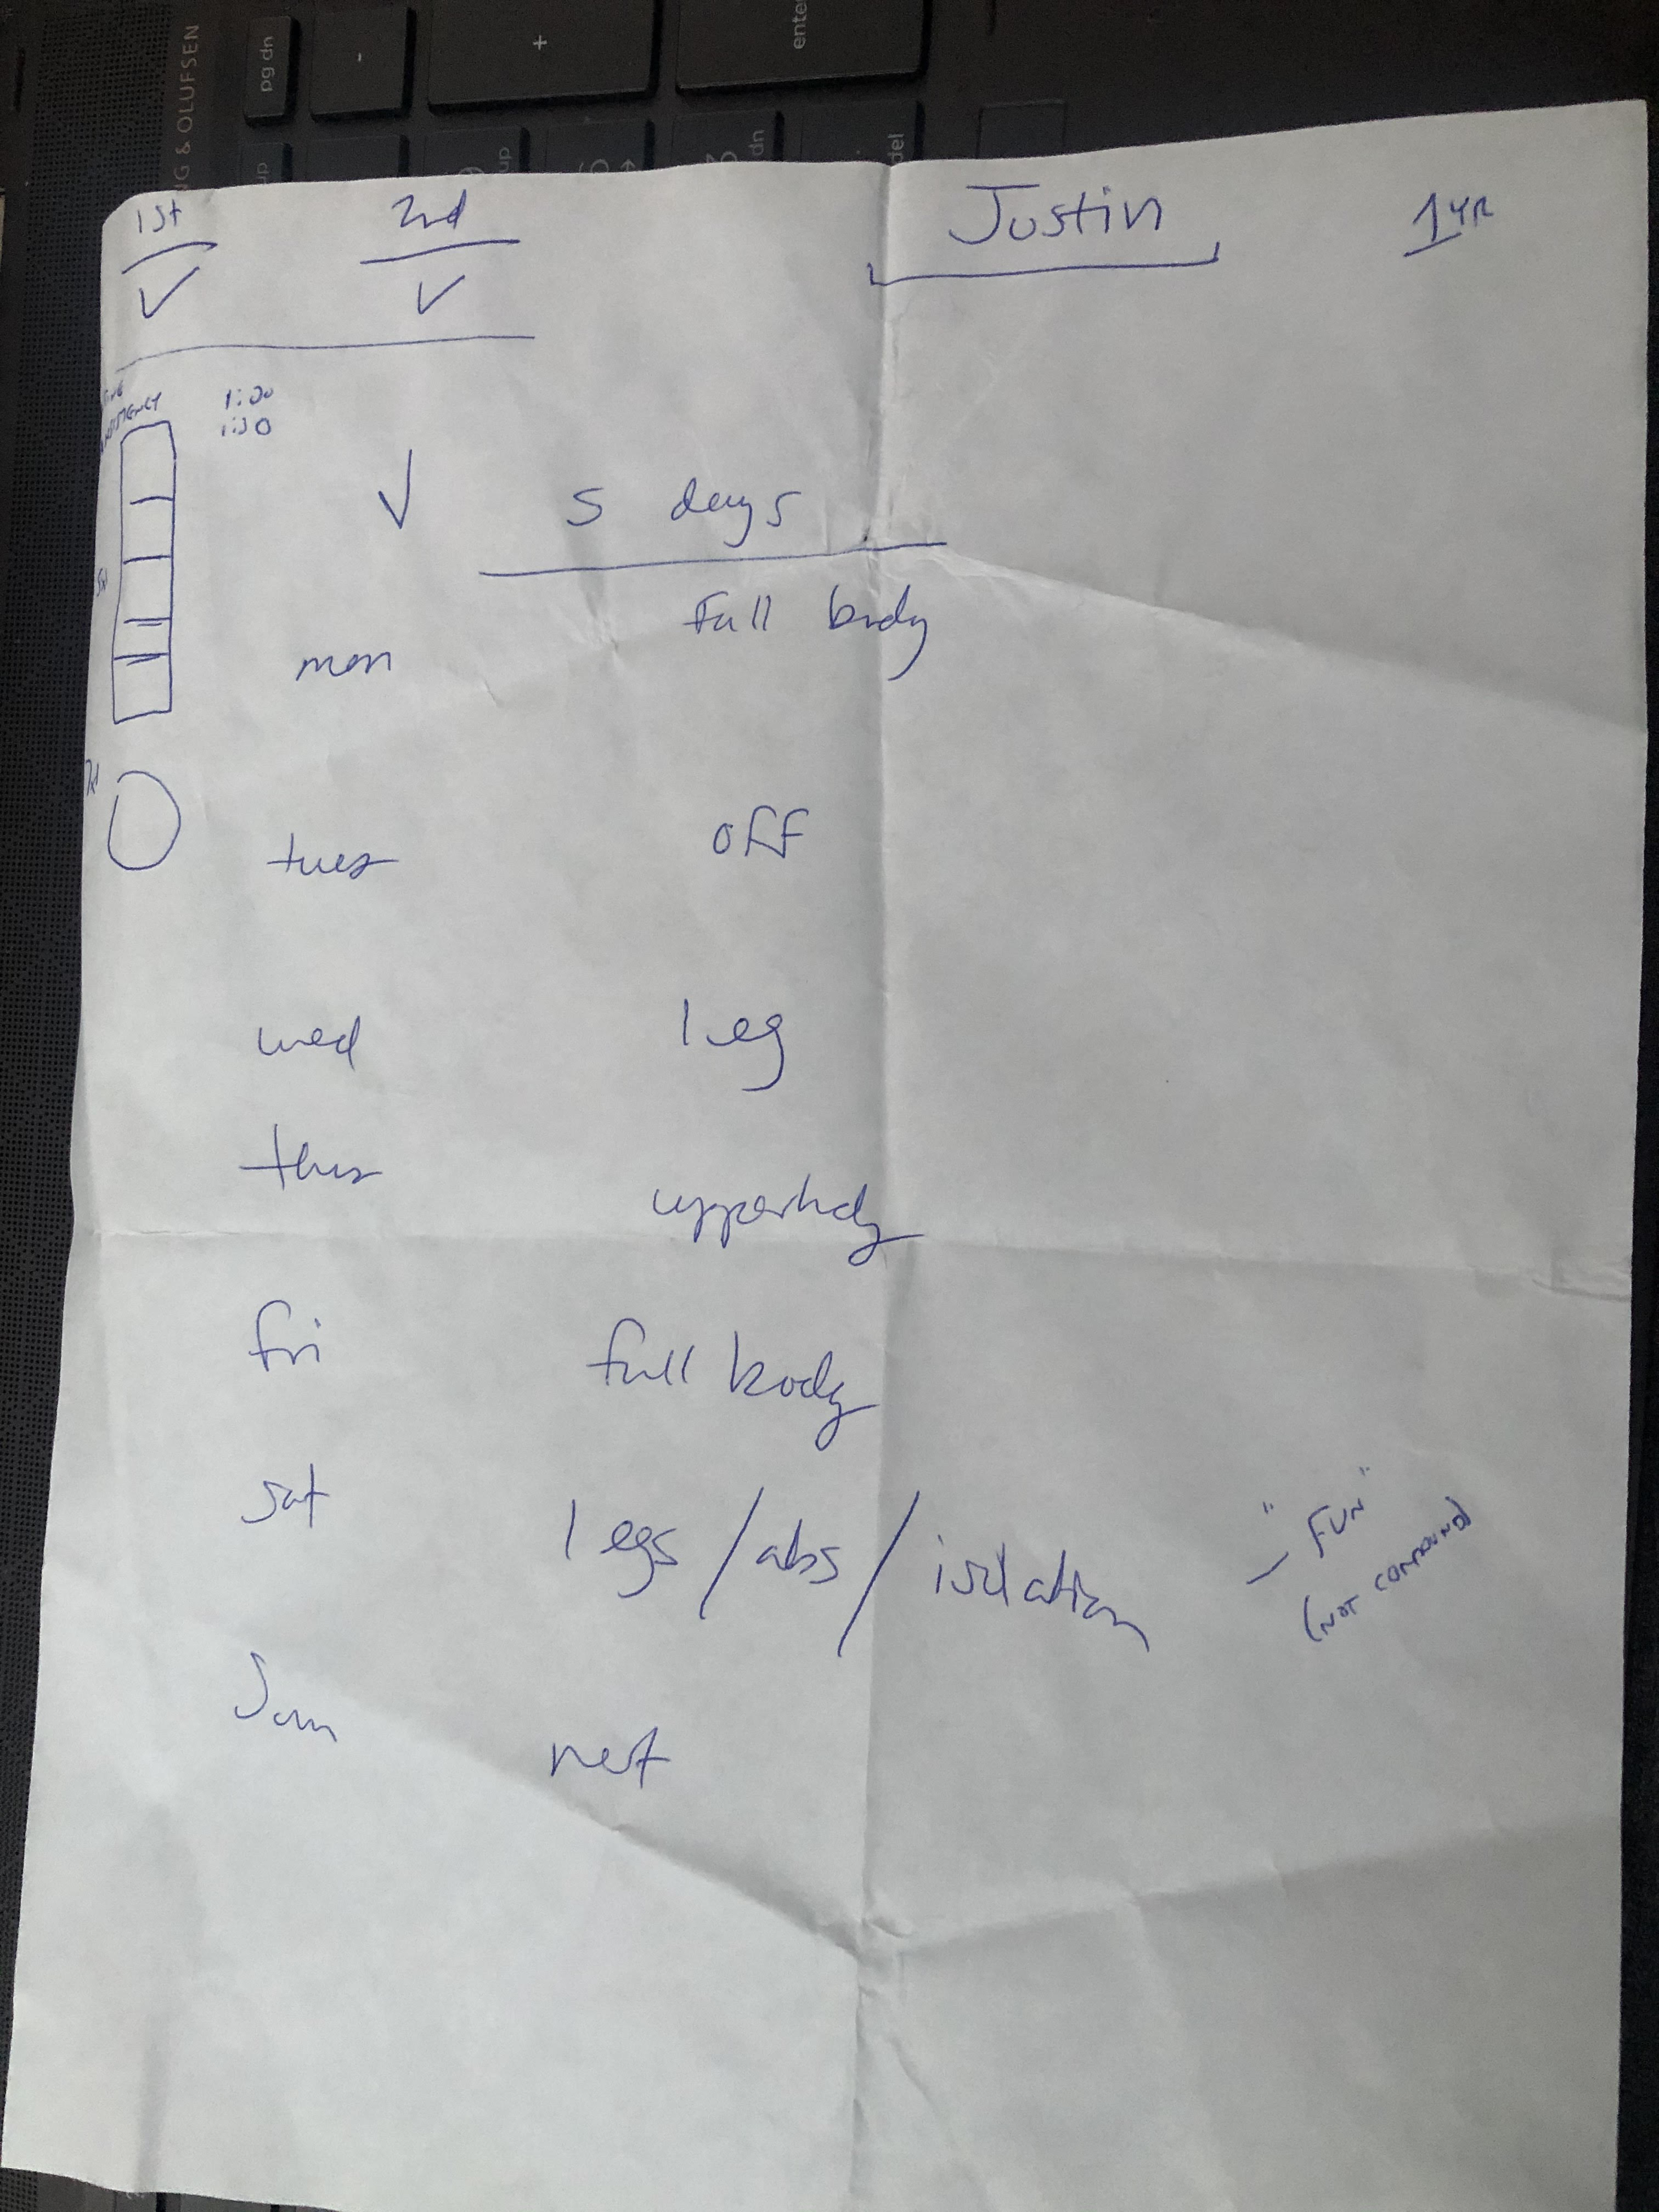 pg dn
-
+
enter
NG & OLUFSEN
up
up
dn
del
1st
2nd
Justin
1 YR
✓
✓
1:00
5 days
Full body
mon
tues
off
wed
leg
thur
upperbody
fri
full body
sat
legs / abs / isolation
- "FUN"
(NOT COMPOUND)
Sun
rest